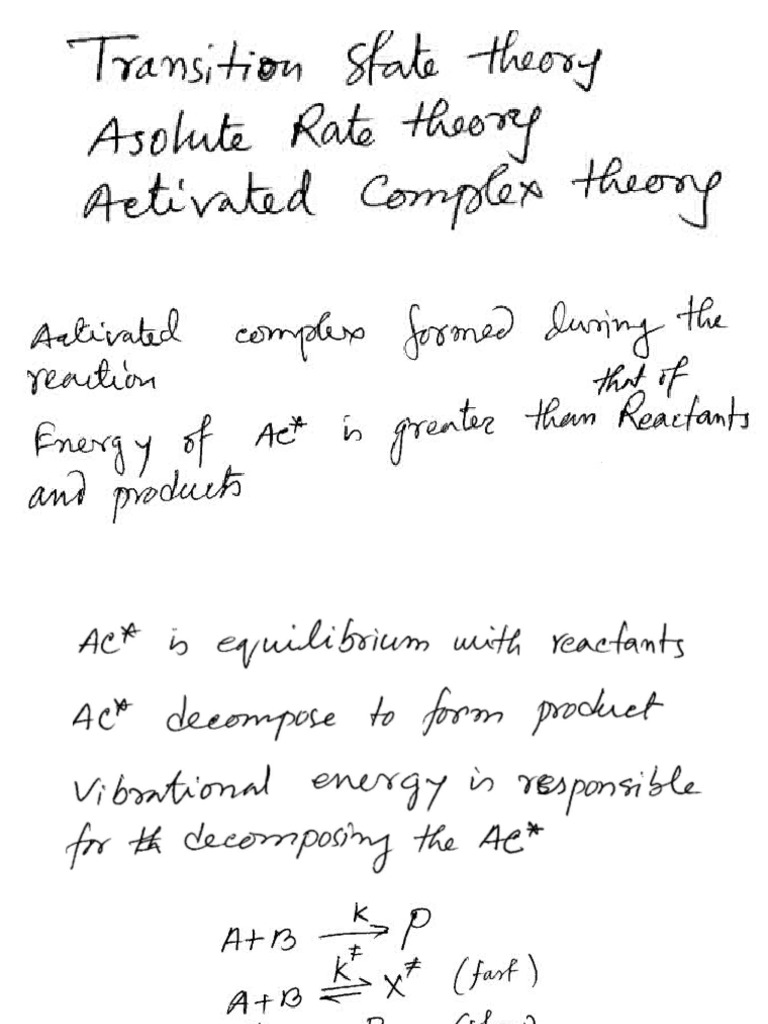 Transition State theory
Asolute Rate theory
Activated Complex theory
Activated complex formed during the
reaction
that of
Energy of AC* is greater than Reactants
and products
AC* is equilibrium with reactants
AC* decompose to form product
Vibrational energy is responsible
for decomposing the AC*
A+B —k→ P
A+B ⇌ X≠ (fast)
K≠